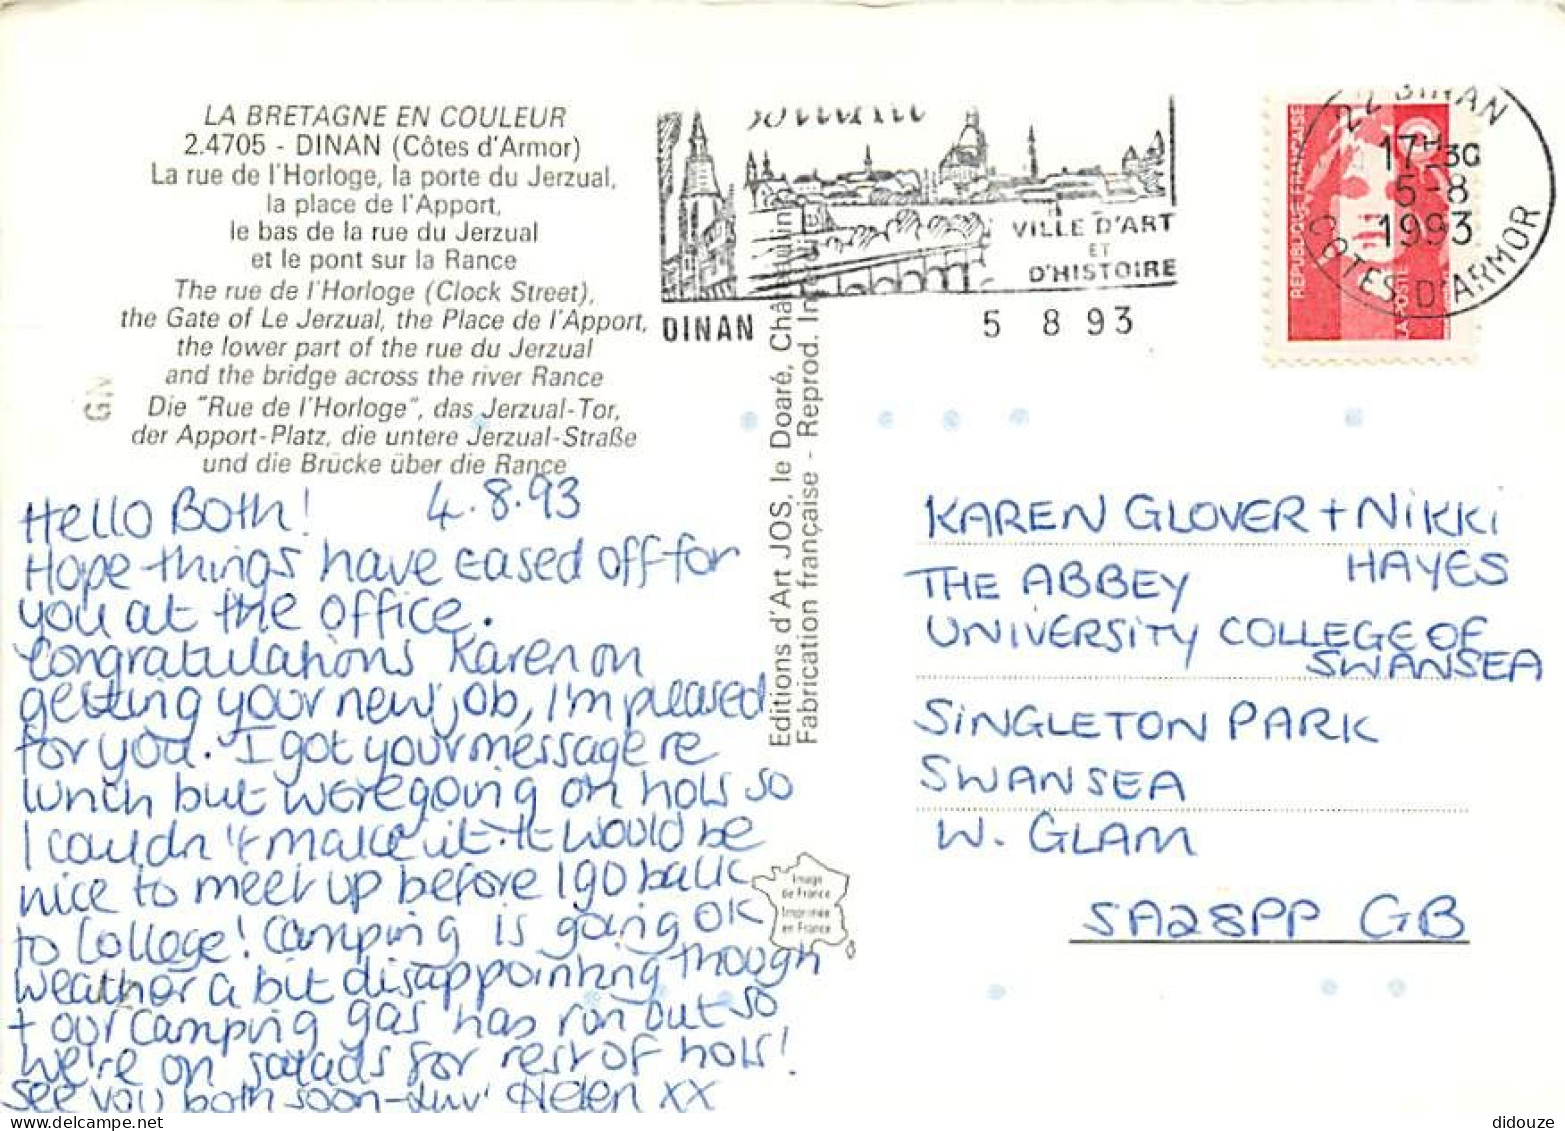 LA BRETAGNE EN COULEUR
2.4705 - DINAN (Côtes d'Armor)
La rue de l'Horloge, la porte du Jerzual,
la place de l'Apport,
le bas de la rue du Jerzual
et le pont sur la Rance
The rue de l'Horloge (Clock Street),
the Gate of Le Jerzual, the Place de l'Apport,
the lower part of the rue du Jerzual
and the bridge across the river Rance
Die "Rue de l'Horloge", das Jerzual-Tor,
der Apport-Platz, die untere Jerzual-Straße
und die Brücke über die Rance
GN
4.8.93
Hello Both!
Hope things have eased off for
you at the office.
Congratulations Karen on
getting your new job, I'm pleased
for you. I got your message re
lunch but were going on hols so
I couldn't make it. It would be
nice to meet up before I go back
to College! Camping is going OK
weather a bit disappointing though
+ our camping gas has run out so
we're on salads for rest of hols!
See you both soon-luv' Helen xx
Editions d'Art JOS, le Doaré, Châteaulin
Fabrication française - Reprod.
Image
de France
Imprimée
en France
DINAN
VILLE D'ART
ET
D'HISTOIRE
5 8 93
REPUBLIQUE FRANÇAISE
LA POSTE
22 DINAN
17H30
5-8
1993
COTES D'ARMOR
KAREN GLOVER + NIKKI
HAYES
THE ABBEY
UNIVERSITY COLLEGE OF
SWANSEA
SINGLETON PARK
SWANSEA
W. GLAM
SA28PP GB
didouze